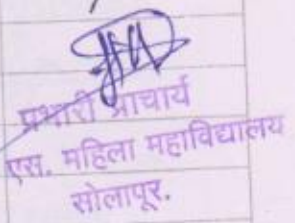 प्रभारी प्राचार्य
एस. महिला महाविद्यालय
सोलापूर.